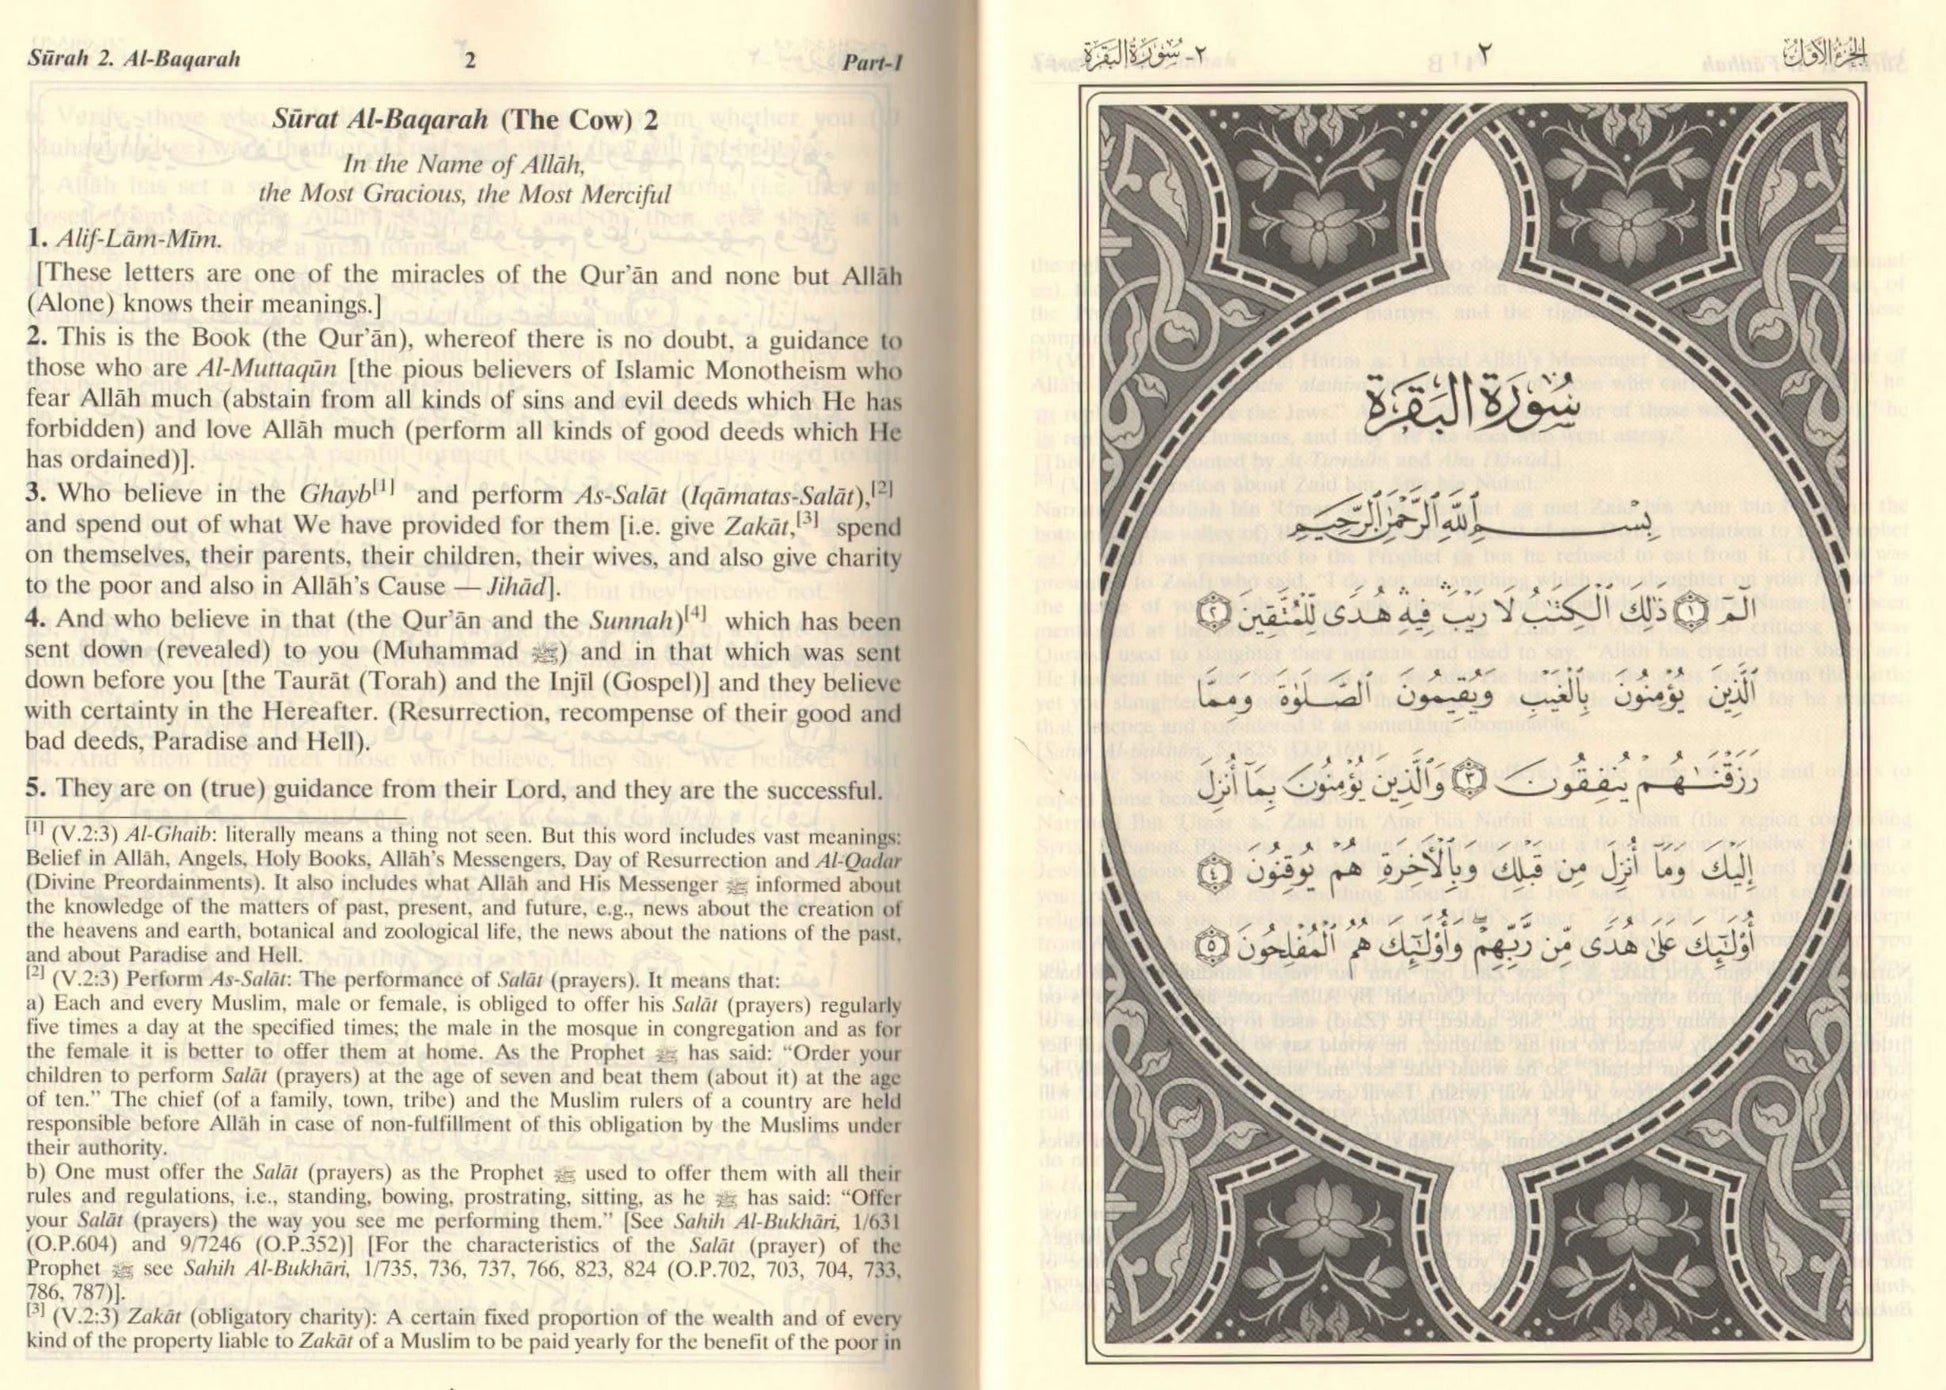 Sūrah 2. Al-Baqarah 2 Part-1
Sūrat Al-Baqarah (The Cow) 2
In the Name of Allāh,
the Most Gracious, the Most Merciful
1. Alif-Lām-Mīm.
[These letters are one of the miracles of the Qur'ān and none but Allāh
(Alone) knows their meanings.]
2. This is the Book (the Qur'ān), whereof there is no doubt, a guidance to
those who are Al-Muttaqūn [the pious believers of Islamic Monotheism who
fear Allāh much (abstain from all kinds of sins and evil deeds which He has
forbidden) and love Allāh much (perform all kinds of good deeds which He
has ordained)].
3. Who believe in the Ghayb[1] and perform As-Salāt (Iqāmatas-Salāt),[2]
and spend out of what We have provided for them [i.e. give Zakāt,[3] spend
on themselves, their parents, their children, their wives, and also give charity
to the poor and also in Allāh's Cause — Jihād].
4. And who believe in that (the Qur'ān and the Sunnah)[4] which has been
sent down (revealed) to you (Muhammad ﷺ) and in that which was sent
down before you [the Taurāt (Torah) and the Injīl (Gospel)] and they believe
with certainty in the Hereafter. (Resurrection, recompense of their good and
bad deeds, Paradise and Hell).
5. They are on (true) guidance from their Lord, and they are the successful.
[1] (V.2:3) Al-Ghaib: literally means a thing not seen. But this word includes vast meanings:
Belief in Allāh, Angels, Holy Books, Allāh's Messengers, Day of Resurrection and Al-Qadar
(Divine Preordainments). It also includes what Allāh and His Messenger ﷺ informed about
the knowledge of the matters of past, present, and future, e.g., news about the creation of
the heavens and earth, botanical and zoological life, the news about the nations of the past,
and about Paradise and Hell.
[2] (V.2:3) Perform As-Salāt: The performance of Salāt (prayers). It means that:
a) Each and every Muslim, male or female, is obliged to offer his Salāt (prayers) regularly
five times a day at the specified times; the male in the mosque in congregation and as for
the female it is better to offer them at home. As the Prophet ﷺ has said: “Order your
children to perform Salāt (prayers) at the age of seven and beat them (about it) at the age
of ten.” The chief (of a family, town, tribe) and the Muslim rulers of a country are held
responsible before Allāh in case of non-fulfillment of this obligation by the Muslims under
their authority.
b) One must offer the Salāt (prayers) as the Prophet ﷺ used to offer them with all their
rules and regulations, i.e., standing, bowing, prostrating, sitting, as he ﷺ has said: “Offer
your Salāt (prayers) the way you see me performing them.” [See Sahih Al-Bukhāri, 1/631
(O.P.604) and 9/7246 (O.P.352)] [For the characteristics of the Salāt (prayer) of the
Prophet ﷺ see Sahih Al-Bukhāri, 1/735, 736, 737, 766, 823, 824 (O.P.702, 703, 704, 733,
786, 787)].
[3] (V.2:3) Zakāt (obligatory charity): A certain fixed proportion of the wealth and of every
kind of the property liable to Zakāt of a Muslim to be paid yearly for the benefit of the poor in
الجزء الأول ٢ ٢- سورة البقرة
سُورَةُ البَقَرَةِ
بِسْمِ ٱللَّهِ ٱلرَّحْمَٰنِ ٱلرَّحِيمِ
الٓمٓ ١ ذَٰلِكَ ٱلْكِتَٰبُ لَا رَيْبَ ۛ فِيهِ ۛ هُدًى لِّلْمُتَّقِينَ ٢
ٱلَّذِينَ يُؤْمِنُونَ بِٱلْغَيْبِ وَيُقِيمُونَ ٱلصَّلَوٰةَ وَمِمَّا
رَزَقْنَٰهُمْ يُنفِقُونَ ٣ وَٱلَّذِينَ يُؤْمِنُونَ بِمَآ أُنزِلَ
إِلَيْكَ وَمَآ أُنزِلَ مِن قَبْلِكَ وَبِٱلْءَاخِرَةِ هُمْ يُوقِنُونَ ٤
أُو۟لَٰٓئِكَ عَلَىٰ هُدًى مِّن رَّبِّهِمْ ۖ وَأُو۟لَٰٓئِكَ هُمُ ٱلْمُفْلِحُونَ ٥